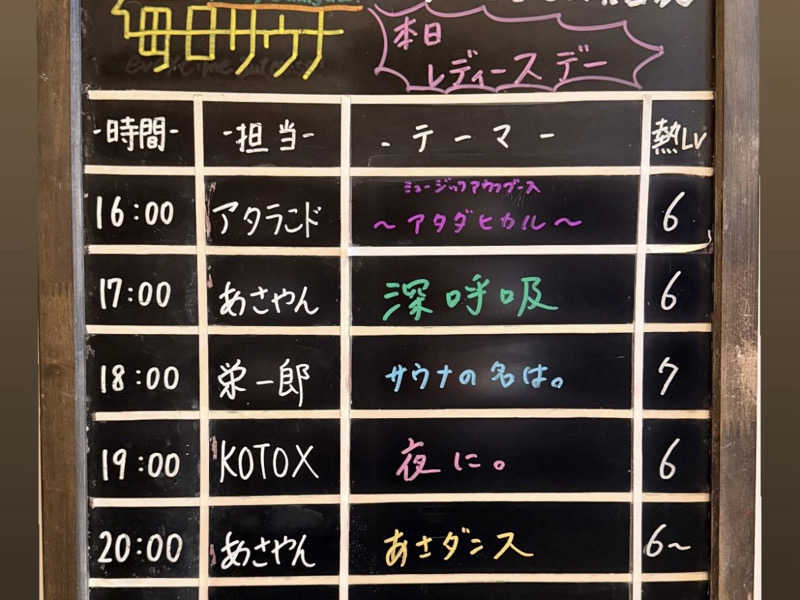 毎日サウナ
本日
レディースデー
-時間- -担当- -テーマ- 熱LV
ミュージックアウフグース
16:00 アタランド ～アタダヒカル～ 6
17:00 あさやん 深呼吸 6
18:00 栄一郎 サウナの名は。 7
19:00 KOTOX 夜に。 6
20:00 あさやん あさダンス 6～